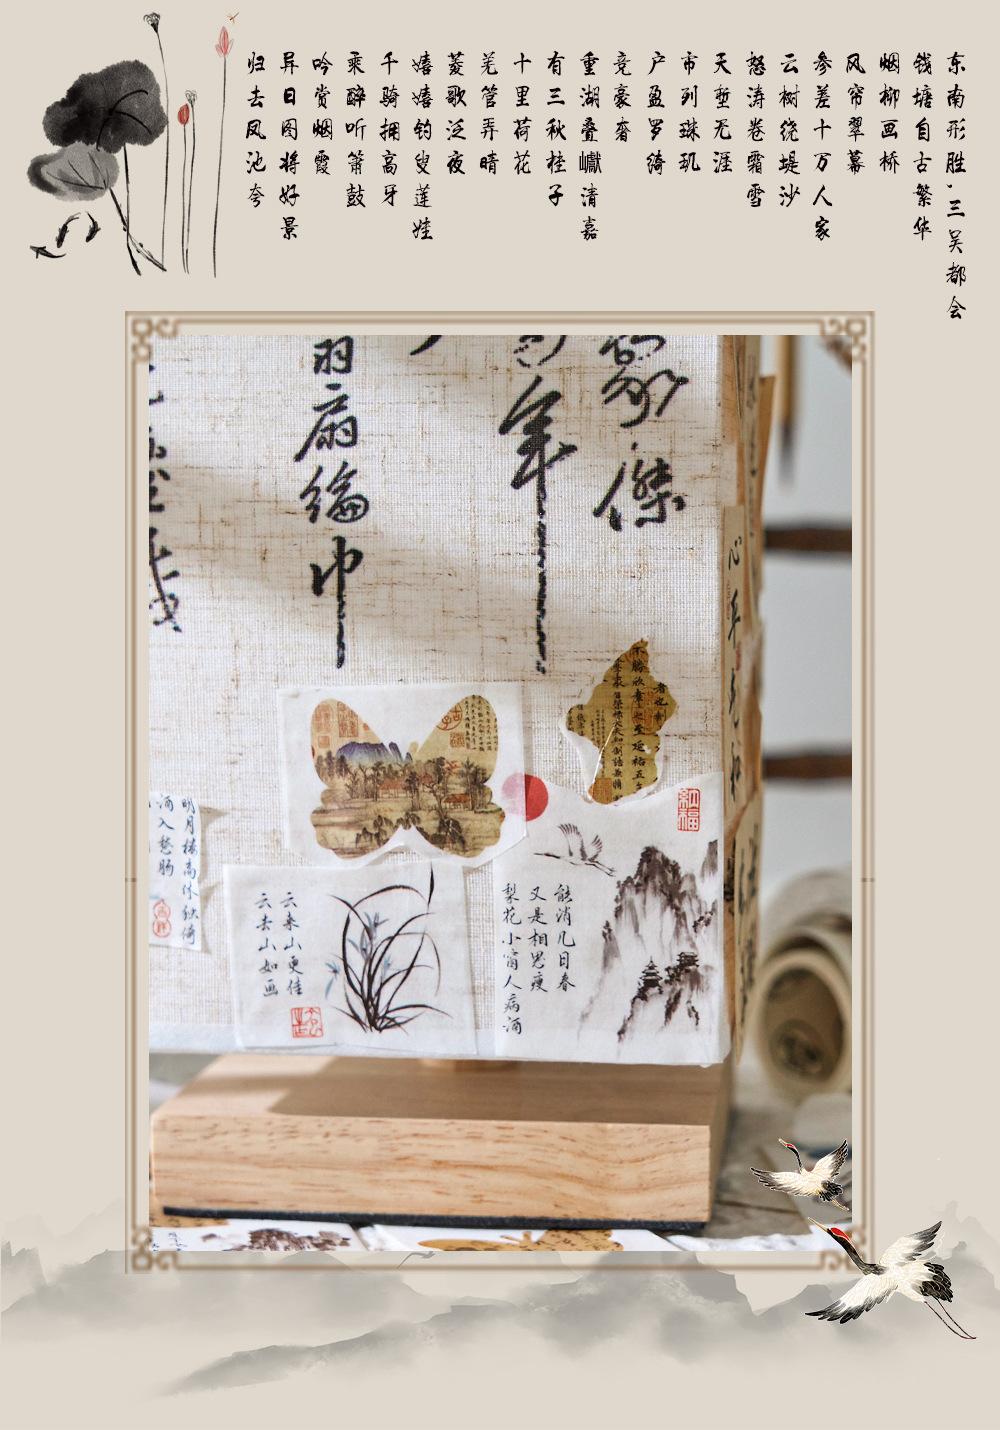 东南形胜，三吴都会
钱塘自古繁华
烟柳画桥
风帘翠幕
参差十万人家
云树绕堤沙
怒涛卷霜雪
天堑无涯
市列珠玑
户盈罗绮
竞豪奢
重湖叠巘清嘉
有三秋桂子
十里荷花
羌管弄晴
菱歌泛夜
嬉嬉钓叟莲娃
千骑拥高牙
乘醉听箫鼓
吟赏烟霞
异日图将好景
归去凤池夸
傑
年
羽扇綸巾
能消几日春
又是相思瘦
梨花小窗人病酒
云来山更佳
云去山如画
明月楼高休独倚
酒入愁肠